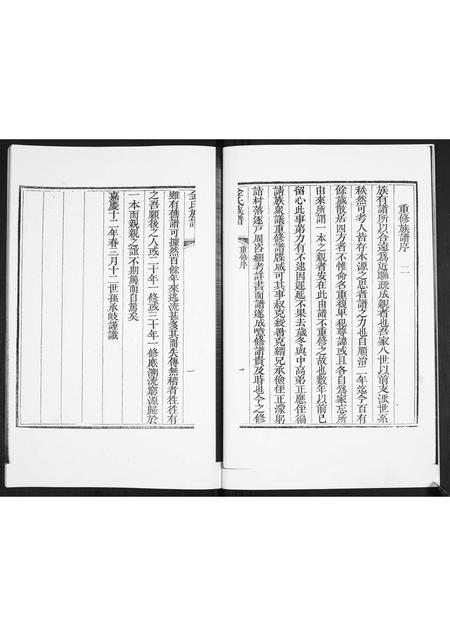 重修族譜序 二
族有譜所以合遠為近聯疏成親者也吾家八世以前支派世系
秩然可考人皆存本源之思者譜之力也自順治二年迄今百有
餘歲散居四方者不惟命名重復卑犯尊諱或且各自為家忘所
由來所謂一本之親者安在此由譜不重修之故也數年以前已
留心此事第力有不逮因遲延不果去歲冬與中高弟正應侄倡
請族眾議重修譜牒咸可其事叔克綏暑克纘兄承儉侄正濛躬
詣村落逐戶周咨細考詳書而譜遂成噫修譜貴及時也今之修
金氏族譜 重修序
金氏族譜
雖有舊譜可據然百餘年來迭流甚多其而失傳無稽者往往有
之吾願後之人或二十年一修或三十年一修庶溯流窮源歸於
一本而親親之誼不期篤而自篤矣
嘉慶十二年春三月十二世孫承岐謹識